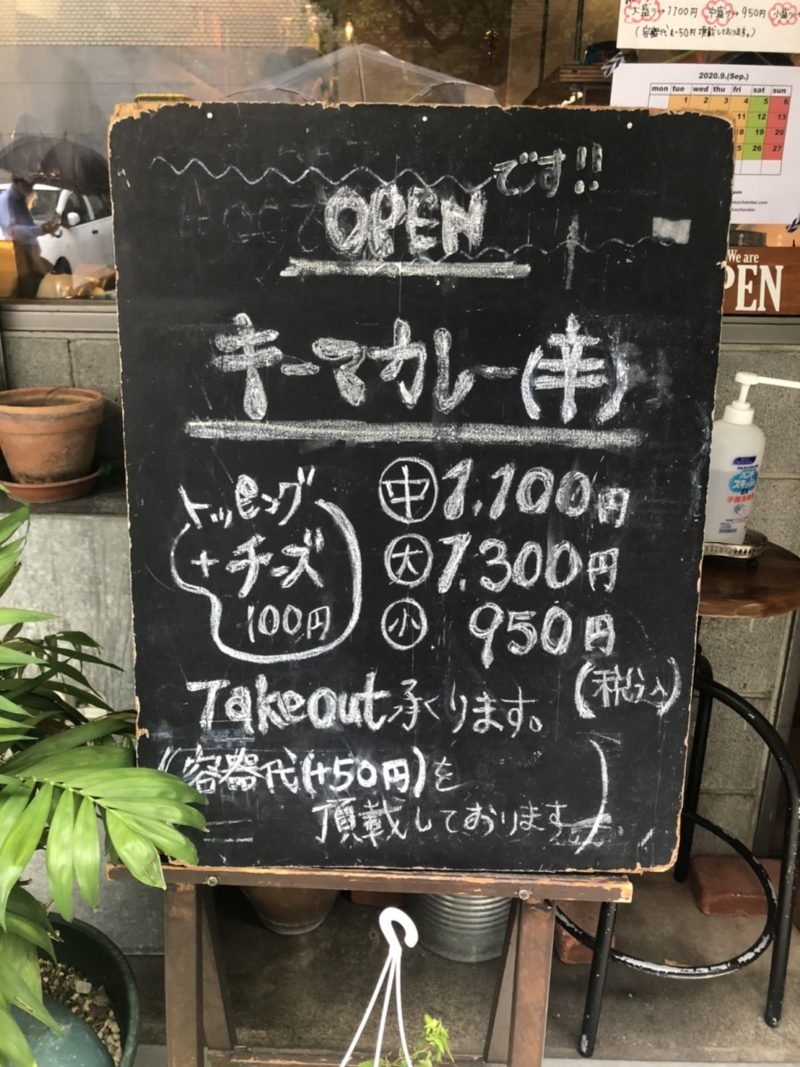 大盛り→1100円 中盛り→950円 小盛り
(容器代を+50円頂載しております。)
2020.9.(Sep.)
mon tue wed thu fri sat sun
1 2 3 4 5 6
11 12 13
18 19 20
25 26 27
We are
OPEN
です!!
OPEN
キーマカレー(辛)
トッピング
+チーズ
100円
中 1,100円
大 1,300円
小 950円
(税込)
Takeout承ります。
(容器代(+50円)を
頂載しております)